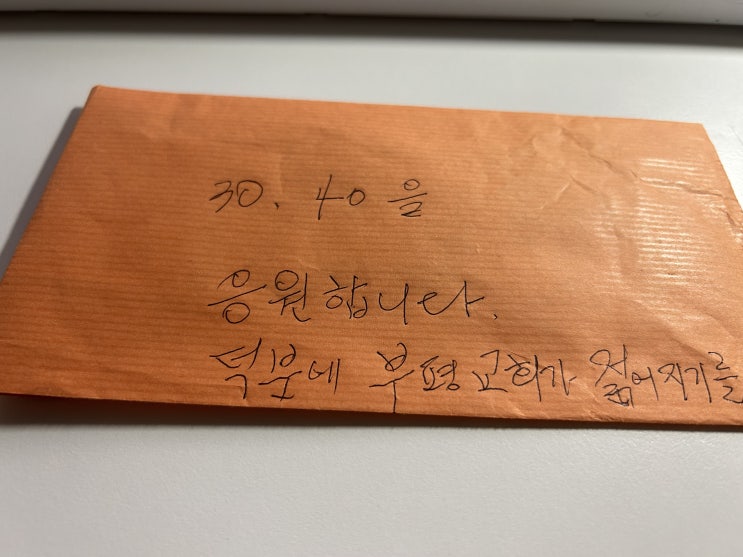 30. 40 을
응원합니다.
덕분에 부평교회가 젊어지기를